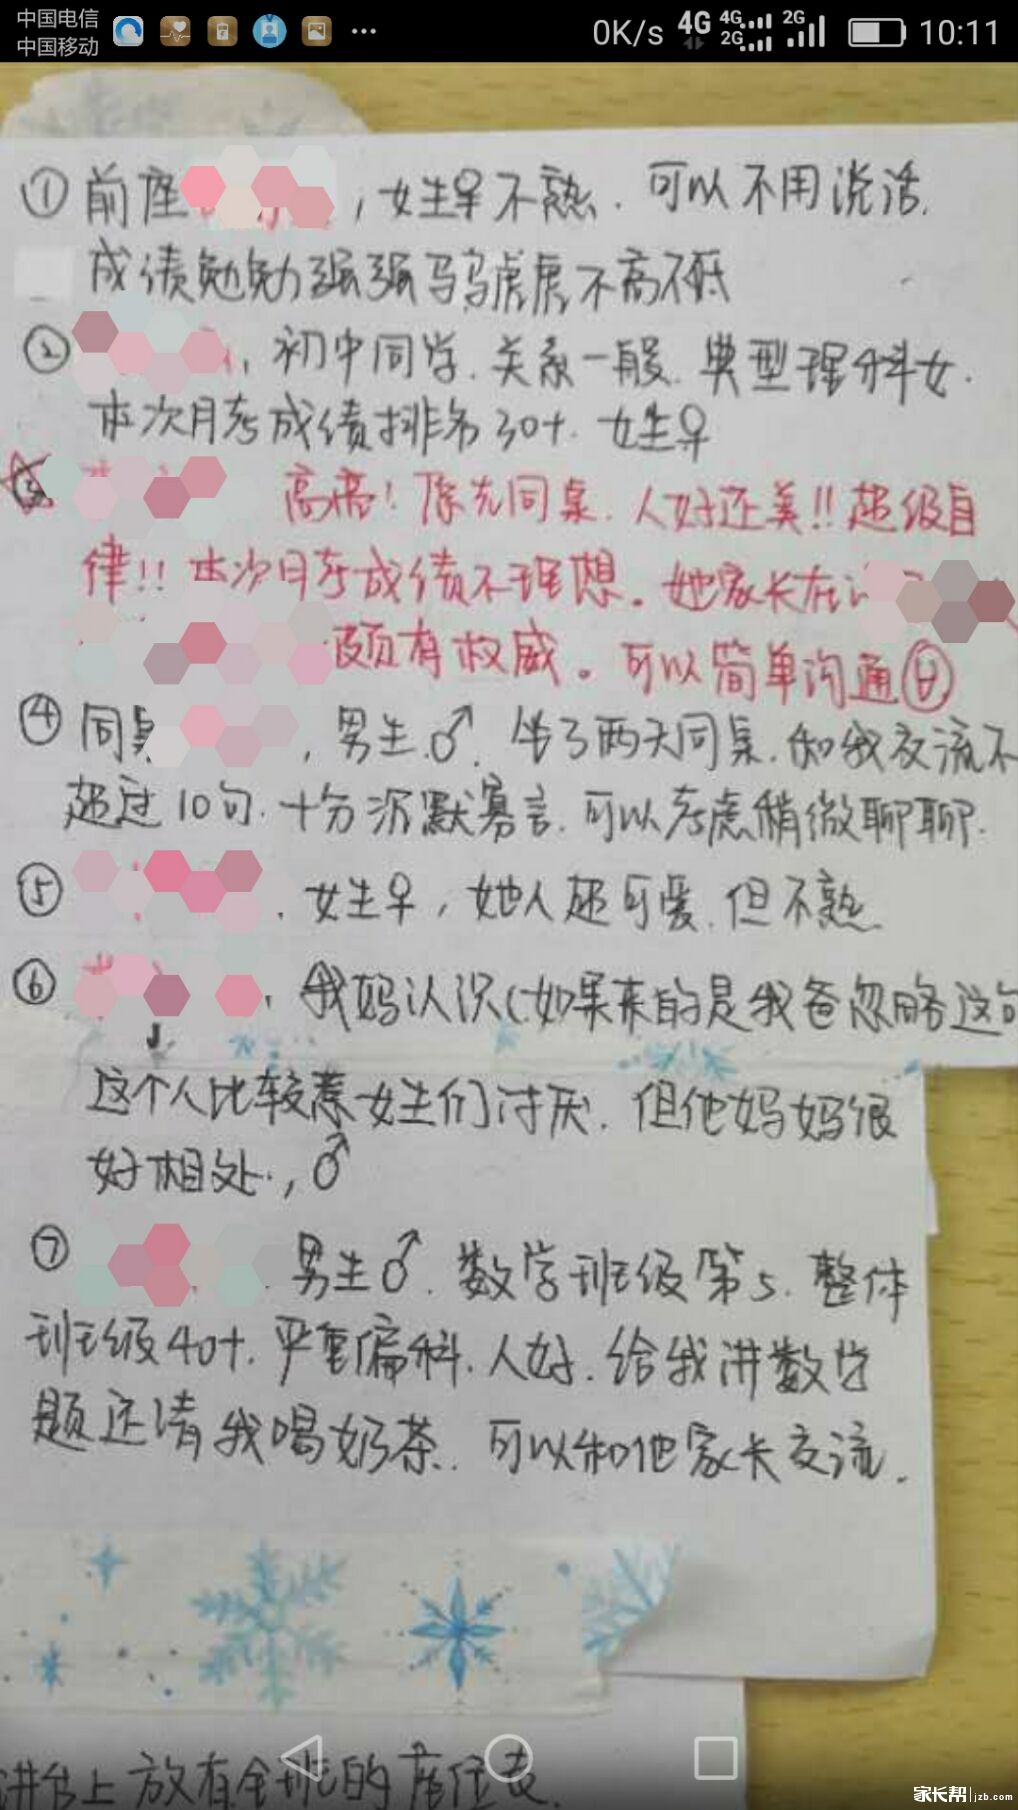 中国电信
中国移动
0K/s 4G 4G 2G 2G 10:11
① 前座 ，女生♀不熟．可以不用说话．
成绩勉勉强强马马虎虎不高不低
② ，初中同学．关系一般．典型理科女．
本次月考成绩排名30+．女生♀
高亮！原先同桌．人好还美!! 超级自
律!! 本次月考成绩不理想。她家长在
颇有权威。可以简单沟通
④ 同桌 ，男生♂．坐了两天同桌．和我交流不
超过10句．十分沉默寡言．可以考虑稍微聊聊．
⑤ ．女生♀，她人超可爱．但不熟．
⑥ ．我妈认识(如果来的是我爸忽略这句
这个人比较惹女生们讨厌．但他妈妈很
好相处．，♂
⑦ 男生♂．数学班级第5．整体
班级40+．严重偏科．人好．给我讲数学
题还请我喝奶茶．可以和他家长交流．
讲台上放有全班的座位表．
家长帮 jzb.com